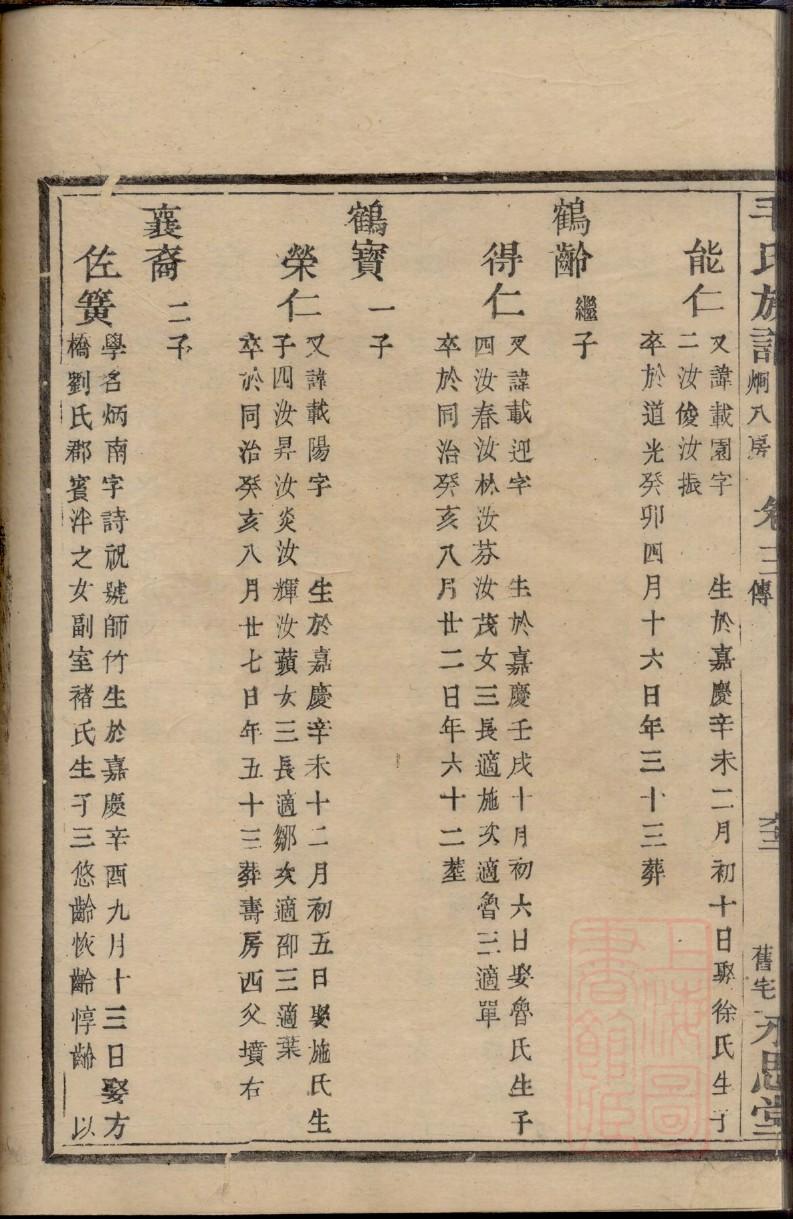 毛氏族譜 烱八房 卷三 傳 六十三 舊宅 永思堂
能仁
又諱載園字 生於嘉慶辛未二月初十日娶徐氏生子
二汝俊汝振
卒於道光癸卯四月十六日年三十三葬
鶴齡 繼子
得仁
又諱載迎字 生於嘉慶壬戌十月初六日娶魯氏生子
四汝春汝林汝芬汝茂女三長適施次適魯三適單
卒於同治癸亥八月廿二日年六十二塟
鶴寶 一子
榮仁
又諱載陽字 生於嘉慶辛未十二月初五日娶施氏生
子四汝昇汝炎汝輝汝蘋女三長適鄒次適邵三適葉
卒於同治癸亥八月廿七日年五十三葬壽房西父墳右
襄裔 二子
佐簧
學名炳南字詩祝號師竹生於嘉慶辛酉九月十三日娶方
橋劉氏郡賓泮之女副室褚氏生子三悠齡恢齡惇齡 以
上海圖書館藏